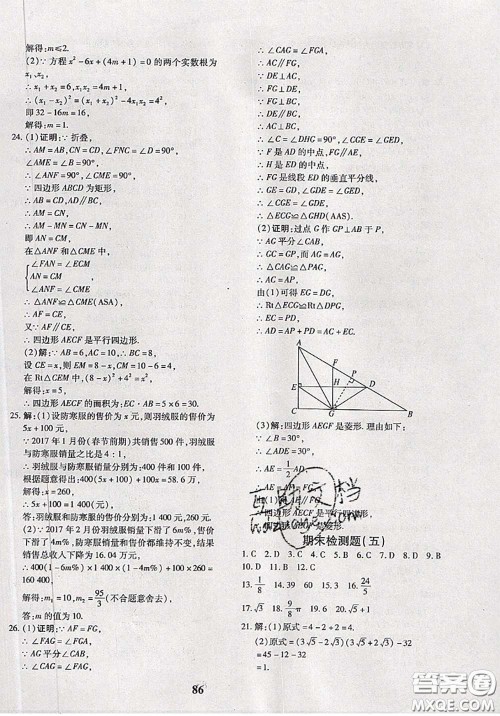 解得:m≤2.
(2)∵方程 x²-6x+(4m+1)=0 的两个实数根为
x₁,x₂,
∴x₁+x₂=6,x₁x₂=4m+1,
∴(x₁-x₂)²=(x₁+x₂)²-4x₁x₂=4²,
即 32-16m=16,
解得:m=1.
24.(1)证明:∵折叠,
∴AM=AB,CN=CD,∠FNC=∠D=90°,
∠AME=∠B=90°,
∴∠ANF=90°,∠CME=90°,
∵四边形 ABCD 为矩形,
∴AB=CD,AD∥BC,
∴AM=CN,
∴AM-MN=CN-MN,
即 AN=CM,
在△ANF 和△CME 中
∠FAN=∠ECM
AN=CM
∠ANF=∠CME
∴△ANF≌△CME(ASA),
∴AF=CE,
又∵AF∥CE,
∴四边形 AECF 是平行四边形.
(2)解:∵AB=6,AC=10,∴BC=8,
设 CE=x,则 EM=8-x,CM=10-6=4,
在 Rt△CEM 中,(8-x)²+4²=x²,
解得:x=5,
∴四边形 AECF 的面积为:EC·AB=5×6=30.
25.解:(1)设防寒服的售价为 x 元,则羽绒服的售价为
5x+100 元,
∵2017 年 1 月份(春节前期)共销售 500 件,羽绒服
与防寒服销量之比是 4:1,
∴羽绒服与防寒服销量分别为:400 件和 100 件,
根据题意得出:400(5x+100)+100x=586000,
解得:x=260,
∴5x+100=1400(元),
答:羽绒服和防寒服的售价为:1400 元,260 元.
(2)∵2 月份羽绒服销量下滑了 6m%,售价下滑了
4m%,防寒服销量和售价都维持不变,结果销售总
额下降为 16.04 万元,
∴400(1-6m%)×1400×(1-4m%)+100×260=
160400,
解得:m₁=10,m₂=95/3(不合题意舍去),
答:m 的值为 10.
26.(1)证明:∵AF=FG,
∴∠FAG=∠FGA,
∵AG 平分∠CAB,
∴∠CAG=∠FAG,
∴∠CAG=∠FGA,
∴AC∥FG,
∵DE⊥AC,
∴FG⊥DE,
∵FG⊥BC,
∴DE∥BC,
∴AC⊥BC,
∴∠C=∠DHG=90°,∠CGE=∠GED,
∵F 是 AD 的中点,FG∥AE,
∴H 是 ED 的中点,
∴FG 是线段 ED 的垂直平分线,
∴GE=GD,∠GDE=∠GED,
∴∠CGE=∠GDE,
∴△ECG≌△GHD(AAS).
(2)证明:过点 G 作 GP⊥AB 于 P,
∵AG 平分∠CAB,
∴GC=GP,而 AG=AG,
∴△CAG≌△PAG,
∴AC=AP,
由(1)可得 EG=DG,
∴Rt△ECG≌Rt△GPD,
∴EC=PD,
∴AD=AP+PD=AC+EC.
A
F
P
E
H
D
C
G
B
(3)解:四边形 AEGF 是菱形.理由如下:
∵∠B=30°,
∴∠ADE=30°,
∴AE=1/2 AD,
∴AE=AF=FG,
期末检测题(五)
1. C 2. D 3. D 4. C 5. C 6. D 7. C 8. D 9. B
10. D 11. A 12. D
13. 1/8 14. 39 15. 4.8 16. 24/5
17. √3 18. 9/8 π 19. 6 20. 16
21.解:(1)原式=4-2+2=4.
(2)原式=(3√5-2√3)(3√5+2√3)-32
=45-12-32
=1.
86
答案圈
MXQE.COM